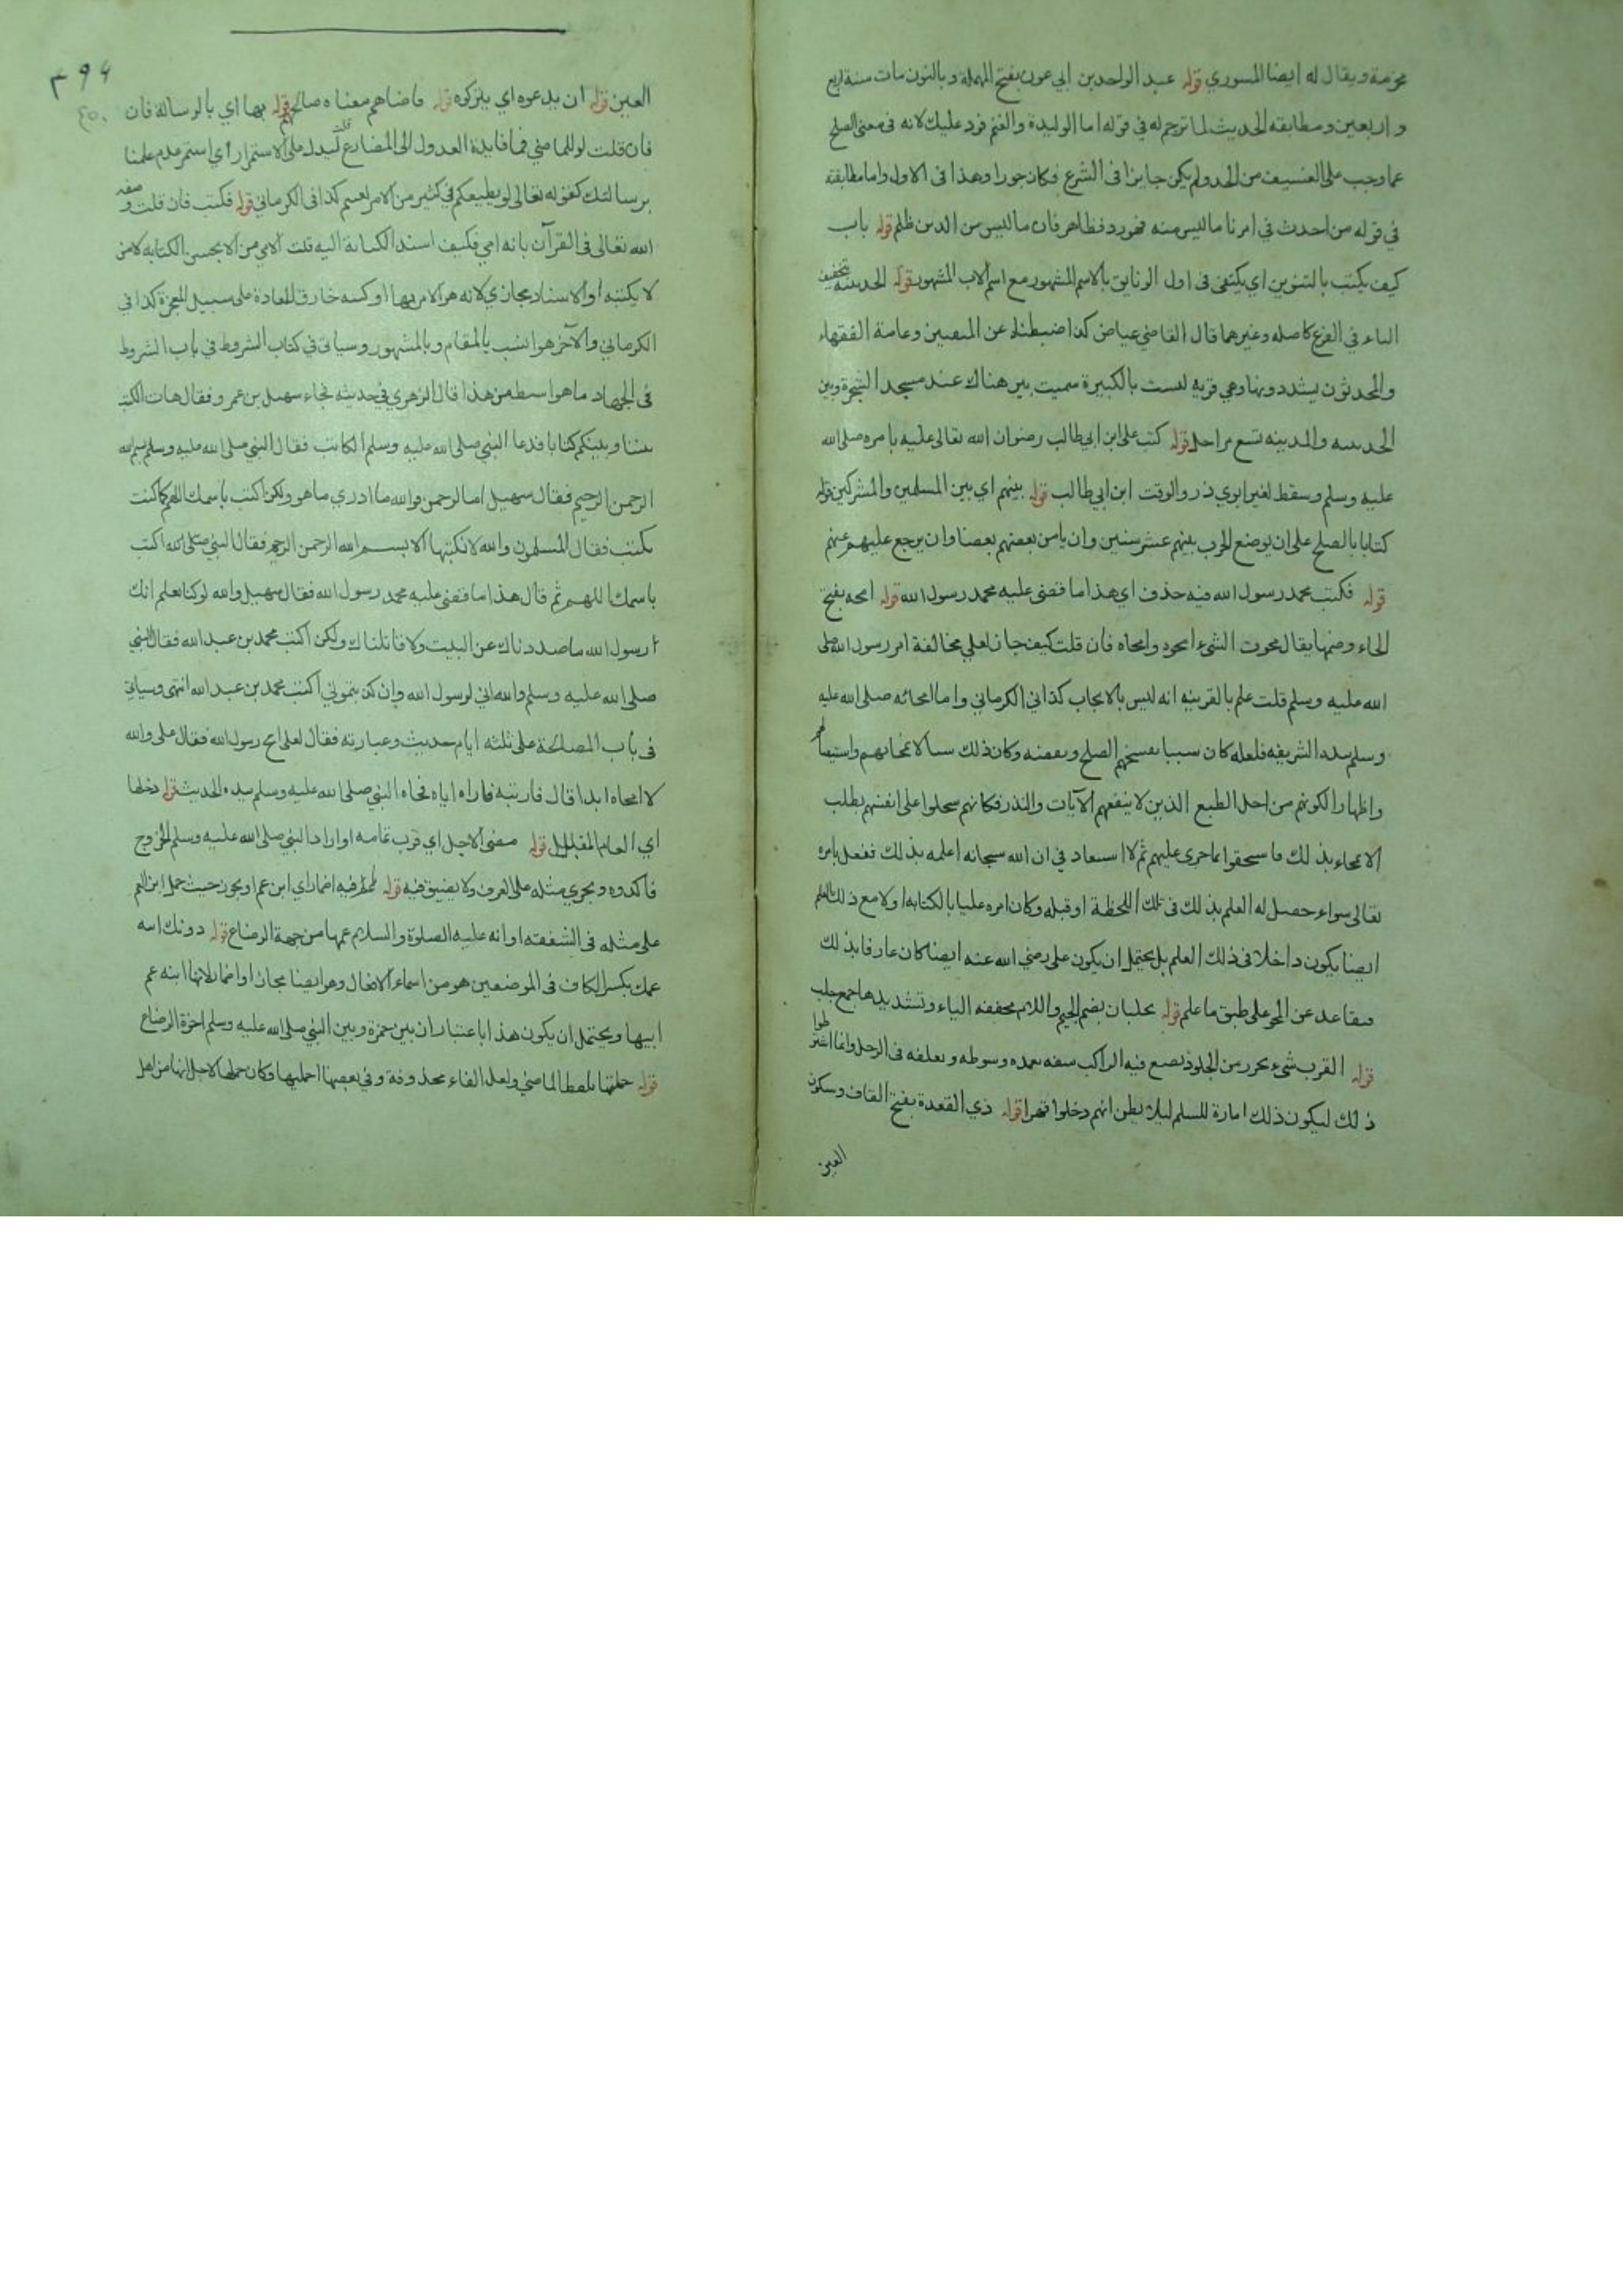 مخرمة ويقال له ايضا المسوري قوله عبد الواحد بن ابي عون بفتح المهملة وبالنون مات سنة اربع
و اربعين ومطابقه الحديث لما ترجم له في قوله اما الوليدة والغنم فرد عليك لانه في معنى الصلح
عما وجب على العسيف من الحد ولم يكن جايزا في الشرع فكان جورا وهذا في الاول واما مطابقة
في قوله من احدث في امرنا ما ليس منه فهو رد فظاهر فان ما ليس من الدين ظلم قوله باب
كيف يكتب بالتنوين اي يكتفى في اول الوثايق بالاسم المشهور مع اسم الاب المشهور قوله الحديبية بتخفيف
الياء في الفرع كاصله وغيرهما قال القاضي عياض كذا ضبطناه عن المتقنين وعامة الفقهاء
والمحدثون يشددونها وهي قريه ليست بالكبيرة سميت ببير هناك عند مسجد الشجرة وبين
الحديبيه والمدينه تسع مراحل قوله كتب على ابن ابي طالب رضوان الله تعالى عليه بامره صلى الله
عليه وسلم وسقط لغير ابوي ذر والوقت ابن ابي طالب قوله بينهم اي بين المسلمين والمشركين قوله
كتابا بالصلح على ان يوضع الحرب بينهم عشر سنين وان يامن بعضهم بعضا وان يرجع عليهم عنهم
قوله فكتب محمد رسول الله فيه حذف اي هذا ما قضى عليه محمد رسول الله قوله امحه بفتح
الحاء وضمها يقال محوت الشيء امحوه وامحاه فان قلت كيف جاز لعلي مخالفة امر رسول الله صلى
الله عليه وسلم قلت علم بالقرينه انه ليس بالايجاب كذا في الكرماني واما امحائه صلى الله عليه
وسلم بيده الشريفه فلعله كان سببا لفسخهم الصلح ونقضه وكان ذلك سببا لامحائهم
واظهارا لكونهم من اهل الطبع الذين لا ينفعهم الآيات والنذر فكانهم سجلوا على انفسهم بطلب
الامحاء بذلك فاستحقوا ما جرى عليهم ثم لا استبعاد في ان الله سبحانه اعلمه بذلك ففعل بامره
تعالى سواء حصل له العلم بذلك في تلك اللحظة او قبله وكان امره عليا بالكتابه اولا مع ذلك العلم
ايضا يكون داخلا في ذلك العلم بل يحتمل ان يكون علي رضي الله عنه ايضا كان عارفا بذلك
فتقاعد عن المحو على طبق ما علم قوله بجلبان بضم الجيم واللام مخففه الياء وتشديدها جمع جلب
قوله القرب شيء يخرز من الجلود يضع فيه الراكب سيفه بغمده وسوطه ويعلقه في الرحل وانما اشترطوا
ذلك ليكون ذلك امارة للسلم ليلا يظن انهم دخلوا قهرا قوله ذي القعدة بفتح القاف وسكون
العين
٣٩٤
٤٥٠
العين قوله ان يدعوه اي يتركوه قوله قاضاهم معناه صالحهم قوله بها اي بالرسالة فان
فان قلت لو للماضي فما فايدة العدول الى المضارع قلت ليدل على الاستمرار اي استمر عدم علمنا
برسالتك كقوله تعالى لو يطيعكم في كثير من الامر لعنتم كذا في الكرماني قوله فكتب فان قلت وصفه
الله تعالى في القرآن بانه امي فكيف اسند الكتابة اليه قلت الامي من لا يحسن الكتابه لا من
لا يكتبه او الاسناد مجازي لانه هو الامر بها او كتبه خارق للعادة على سبيل المعجزة كذا في
الكرماني والآخر هو انسب بالمقام وبالمشهور وسياتي في كتاب الشروط في باب الشروط
في الجهاد ما هو ابسط من هذا قال الزهري في حديثه فجاء سهيل بن عمرو فقال هات اكتب
بيننا وبينكم كتابا فدعا النبي صلى الله عليه وسلم الكاتب فقال النبي صلى الله عليه وسلم بسم الله
الرحمن الرحيم فقال سهيل اما الرحمن فوالله ما ادري ما هو ولكن اكتب باسمك اللهم كما كنت
تكتب فقال المسلمون والله لا نكتبها الا بسم الله الرحمن الرحيم فقال النبي صلى الله اكتب
باسمك اللهم ثم قال هذا ما قضى عليه محمد رسول الله فقال سهيل والله لو كنا نعلم انك
رسول الله ما صددناك عن البيت ولا قاتلناك ولكن اكتب محمد بن عبد الله فقال النبي
صلى الله عليه وسلم والله اني لرسول الله وان كذبتموني اكتب محمد بن عبد الله انتهى وسياتي
في باب المصالحة على ثلثه ايام حديث وعبارته فقال لعلى امح رسول الله فقال على والله
لا امحاه ابدا قال فارنيه فاراه اياه فمحاه النبي صلى الله عليه وسلم بيده الحديث قوله دخلها
اي العام المقبل قوله مضى الاجل اي قرب تمامه او اراد النبي صلى الله عليه وسلم الخروج
فاكدوه ويجوي مثله على العرف ولا يضيق فيه قوله فيه اضمار اي ابن عم او يجوز حيث حمل ابن العم
على مثله في الشفقه او انه عليه الصلوة والسلام عمها من جهة الرضاع قوله دونك ابنه
عمك بكسر الكاف في الموضعين هو من اسماء الافعال وهو ايضا مجاز او اضمار لانها ابنه عم
ابيها ويحتمل ان يكون هذا باعتبار ان بين حمزة وبين النبي صلى الله عليه وسلم اخوة الرضاع
قوله حملتها بلفظ الماضي ولعل الفاء محذوفة وفي بعضها احمليها وكان حملها لاجل انها من اهل